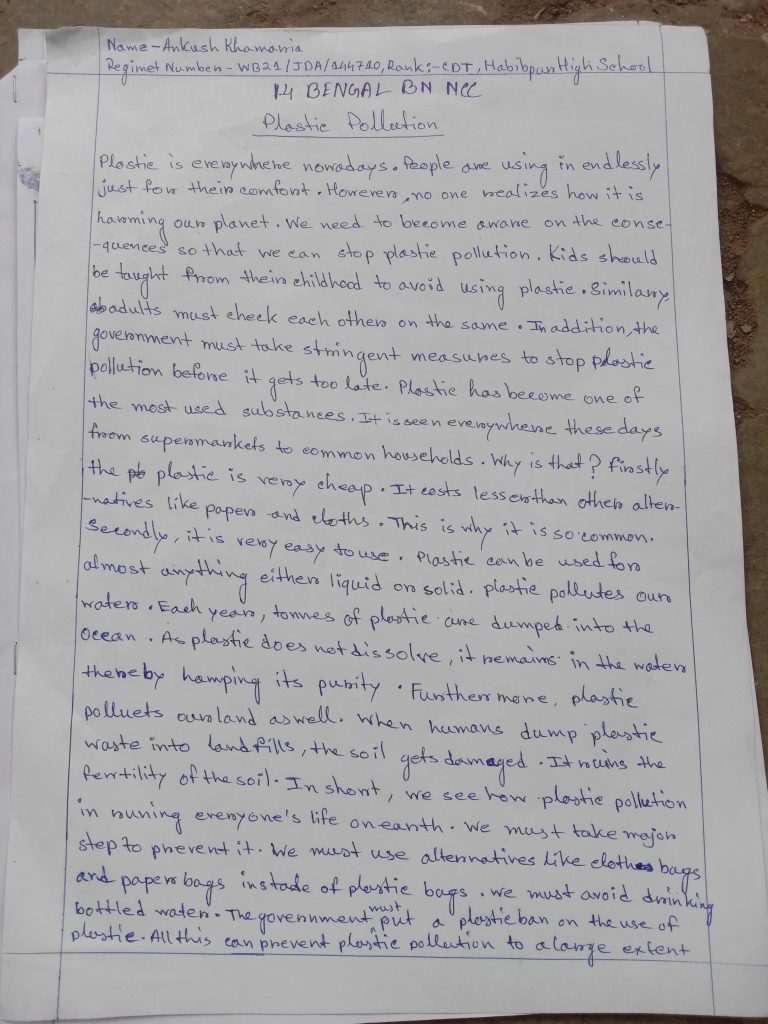 Name - Ankush Khamaria
Regimet Number - WB21/JDA/144710, Rank :- CDT, Habibpur High School
14 BENGAL BN NCC
Plastic Pollution
Plastic is everywhere nowadays. People are using in endlessly
just for their comfort. However, no one realizes how it is
harming our planet. We need to become aware on the conse-
-quences so that we can stop plastic pollution. Kids should
be taught from their childhood to avoid using plastic. Similary
adults must check each other on the same. In addition, the
government must take stringent measures to stop plastic
pollution before it gets too late. Plastic has become one of
the most used substances. It is seen everywhere these days
from supermarkets to common households. Why is that? firstly
the plastic is very cheap. It costs lesser than other alter-
-natives like paper and cloths. This is why it is so common.
Secondly, it is very easy to use. Plastic can be used for
almost anything either liquid or solid. plastic pollutes our
water. Each year, tonnes of plastic are dumped into the
Ocean. As plastic does not dissolve, it remains in the water
thereby hamping its purity. Furthermore, plastic
polluets our land as well. When humans dump plastic
waste into landfills, the soil gets damaged. It ruins the
fertility of the soil. In short, we see how plastic pollution
in runing everyone's life on earth. We must take major
step to prevent it. We must use alternatives like cloths bags
and paper bags instade of plastic bags. we must avoid drinking
bottled water. The government must put a plastic ban on the use of
plastic. All this can prevent plastic pollution to a large extent